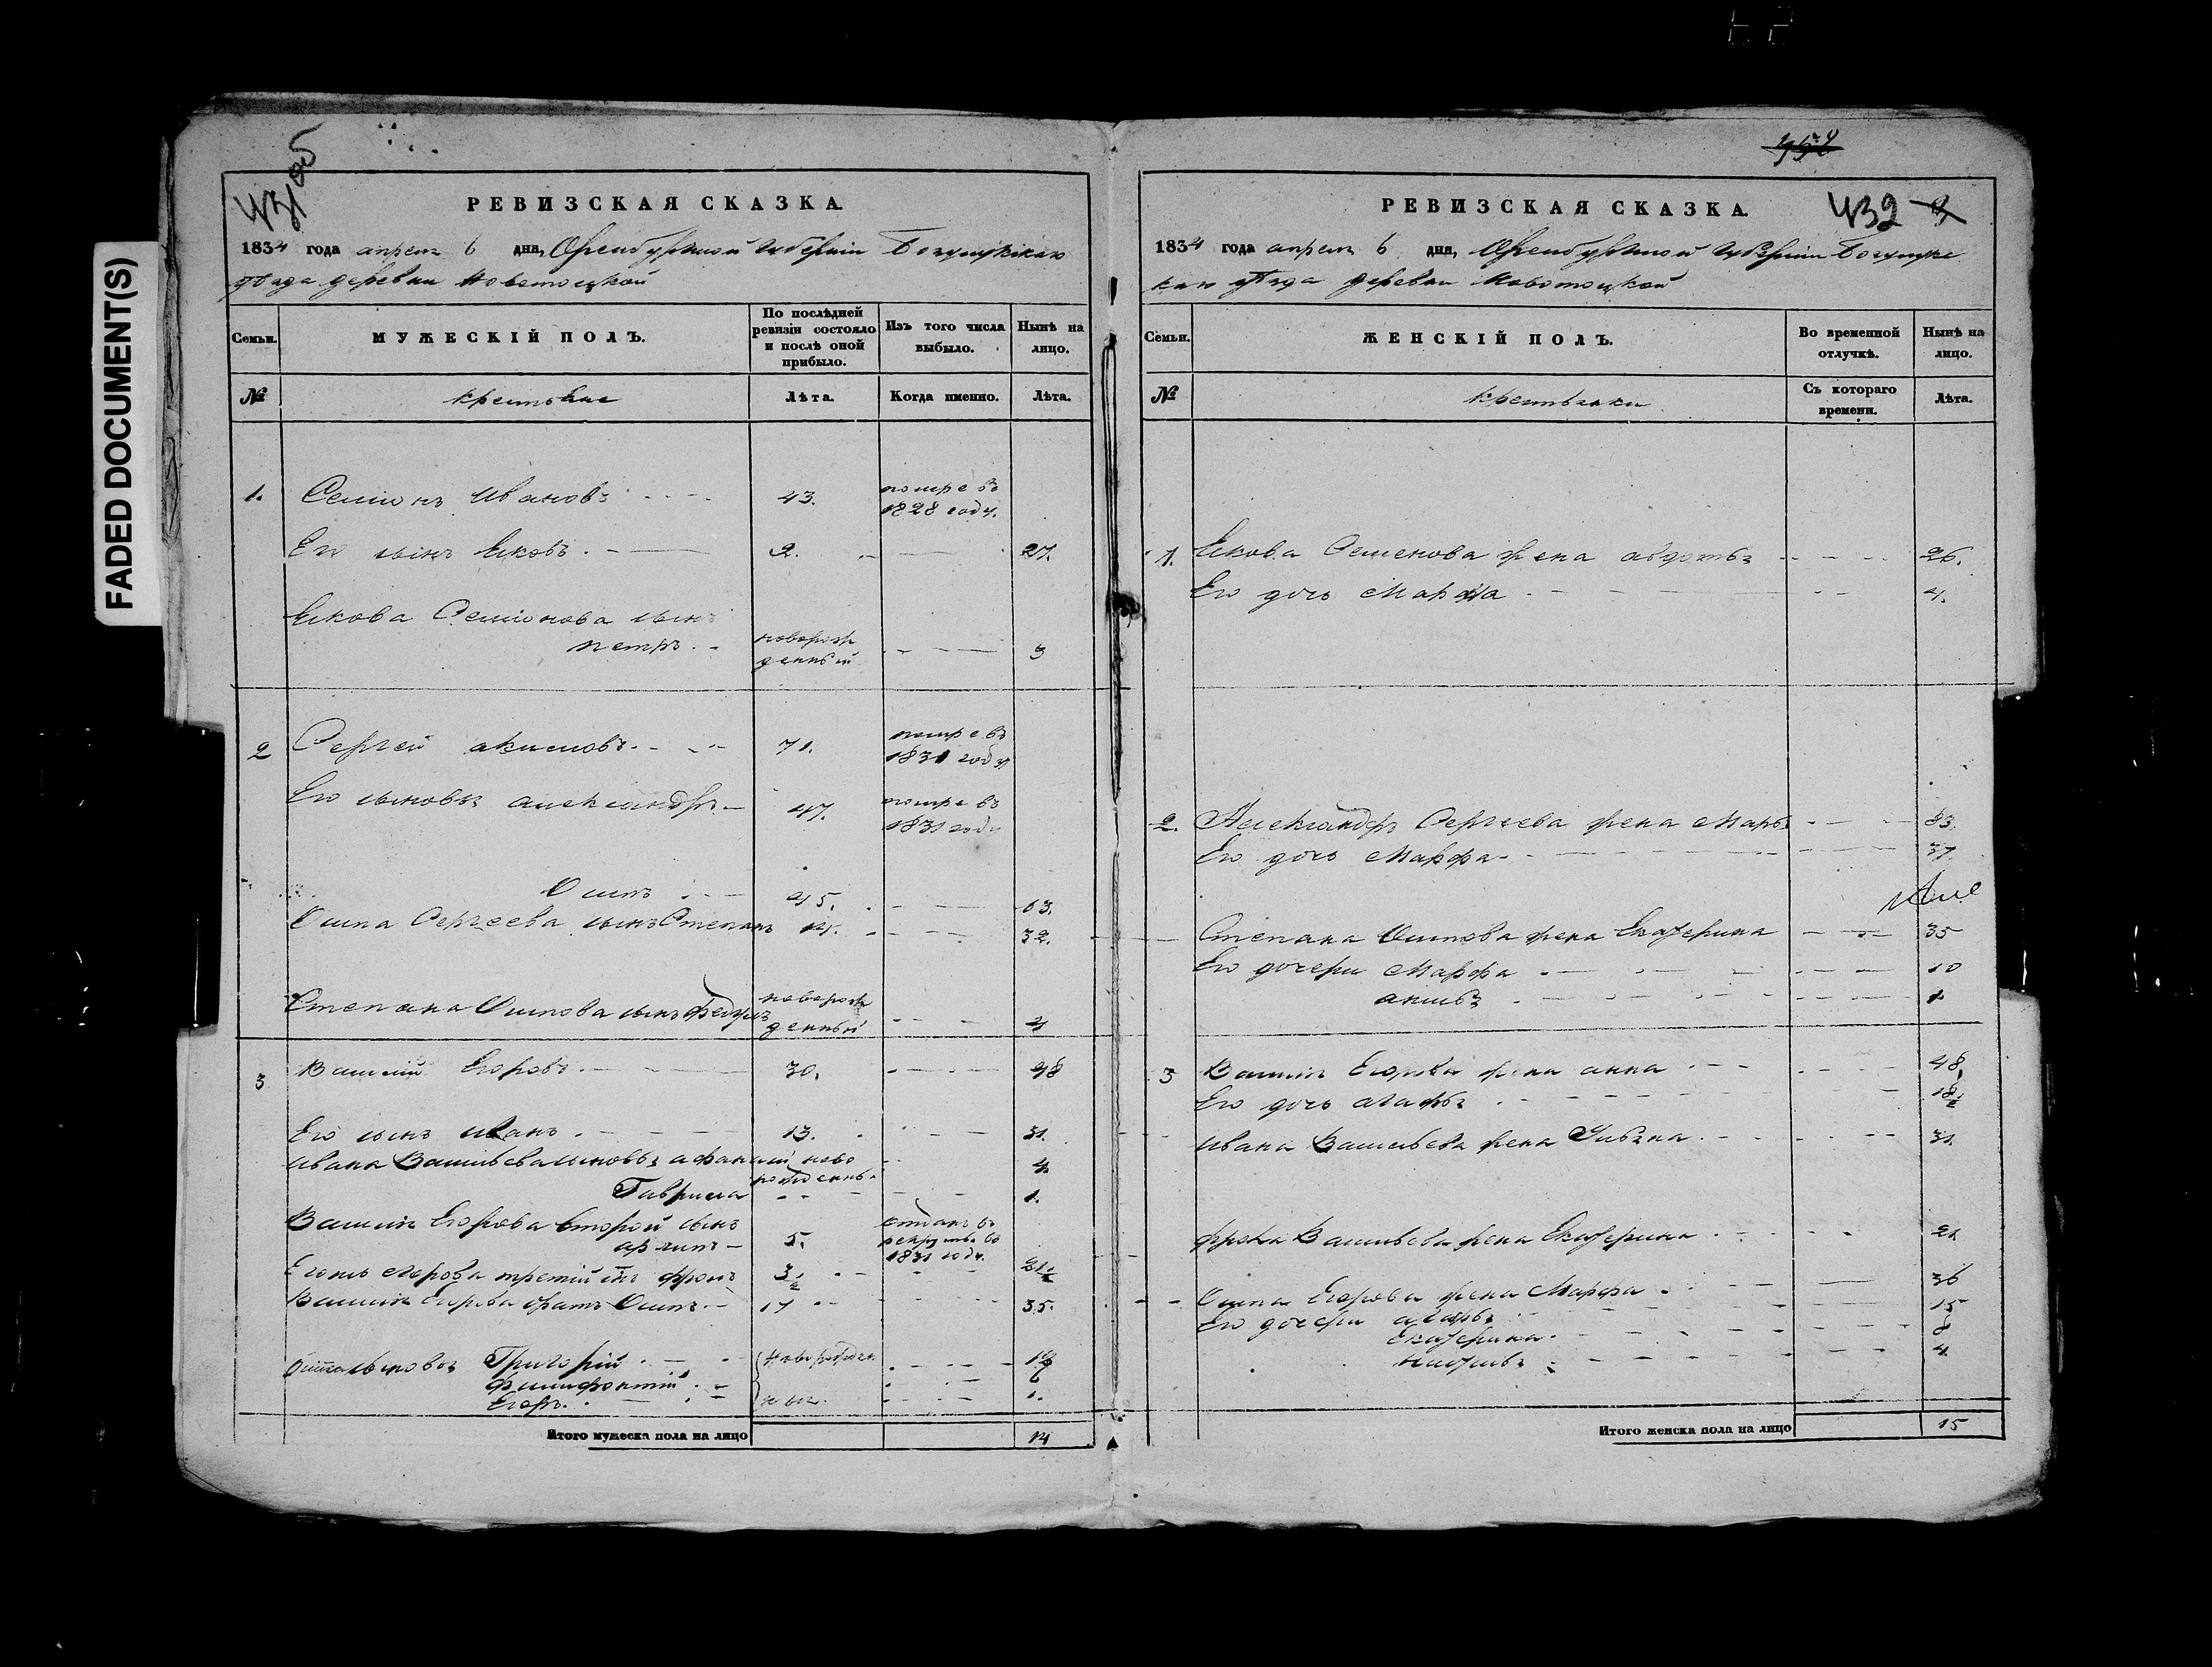 FADED DOCUMENT(S)
431 об
РЕВИЗСКАЯ СКАЗКА.
1834 года апреля 6 дня, Оренбургской Губернiи Бузулукскаго
уѣзда деревни Новотоцкой
Семьи.
МУЖЕСКІЙ ПОЛЪ.
По послѣдней ревизіи состояло и послѣ оной прибыло.
Изъ того числа выбыло.
Нынѣ на лицо.
№
крестьяне
Лѣта.
Когда именно.
Лѣта.
1. Семіонъ Ивановъ 43. помре въ
1828 году.
Его сынъ Яковъ 2. 27.
Якова Семіонова сынъ
петръ новорож
денный 3
2 Сергей акимовъ 71. помре въ
1831 году
Его сыновья александръ 47. помре въ
1831 году
Осипъ 45. 63.
Осипа Сергеева сынъ Степанъ 14. 32.
Степана Осипова сынъ новорож
денный 4
3 Василій Егоровъ 30. 48
Его сынъ иванъ 13. 31.
ивана Васильева сыновья афанасій ново
рожденн. 4
Гаврила 1.
Василья Егорова второй сынъ
архипъ 5. отданъ въ
рекруты въ
1831 году.
третій фролъ 3½ 21½
Василья Егорова братъ Осипъ 17 35.
сыновья Григорій новорожден
Егоръ. 1.
Итого мужеска пола на лицо 14
РЕВИЗСКАЯ СКАЗКА.
432
1834 года апреля 6 дня, Оренбургской Губернiи Бузулукс
каго уѣзда деревни Новотоцкой
Семьи.
ЖЕНСКІЙ ПОЛЪ.
Во временной отлучкѣ.
Нынѣ на лицо.
№
крестьянки
Съ котораго времени.
Лѣта.
1. Якова Семенова жена авдотья 26.
Его дочь Марфа 4.
2. Александръ Сергеева жена Марья
Его дочь Марфа 37
Степана Осипова жена Екатерина 35
Его дочери Марфа 10
1
3 Василья Егорова жена анна 48
Его дочь агафья 18½
ивана Васильева жена 31
фрола Васильева жена Екатерина 21
Осипа Егорова жена Марфа 36
Его дочери 15
Екатерина 8
4
Итого женска пола на лицо 15